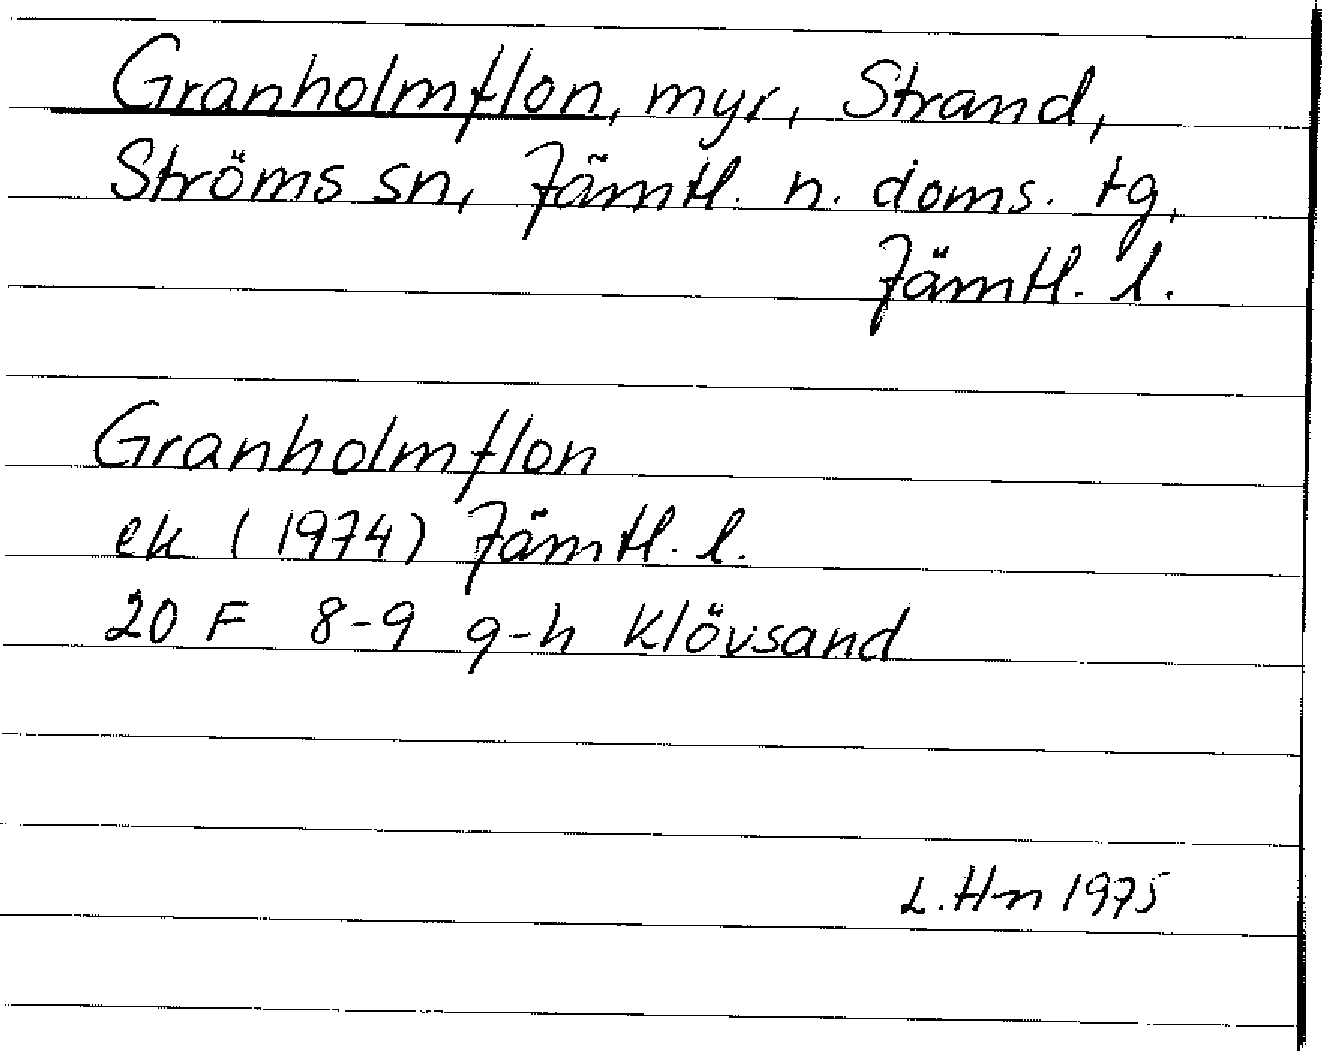 Granholmflon, myr, Strand,
Ströms sn, Jämtl. n. doms. tg,
Jämtl. l.
Granholmflon
ek (1974) Jämtl. l.
20 F 8-9 g-h Klövsand
L. Hn 1975